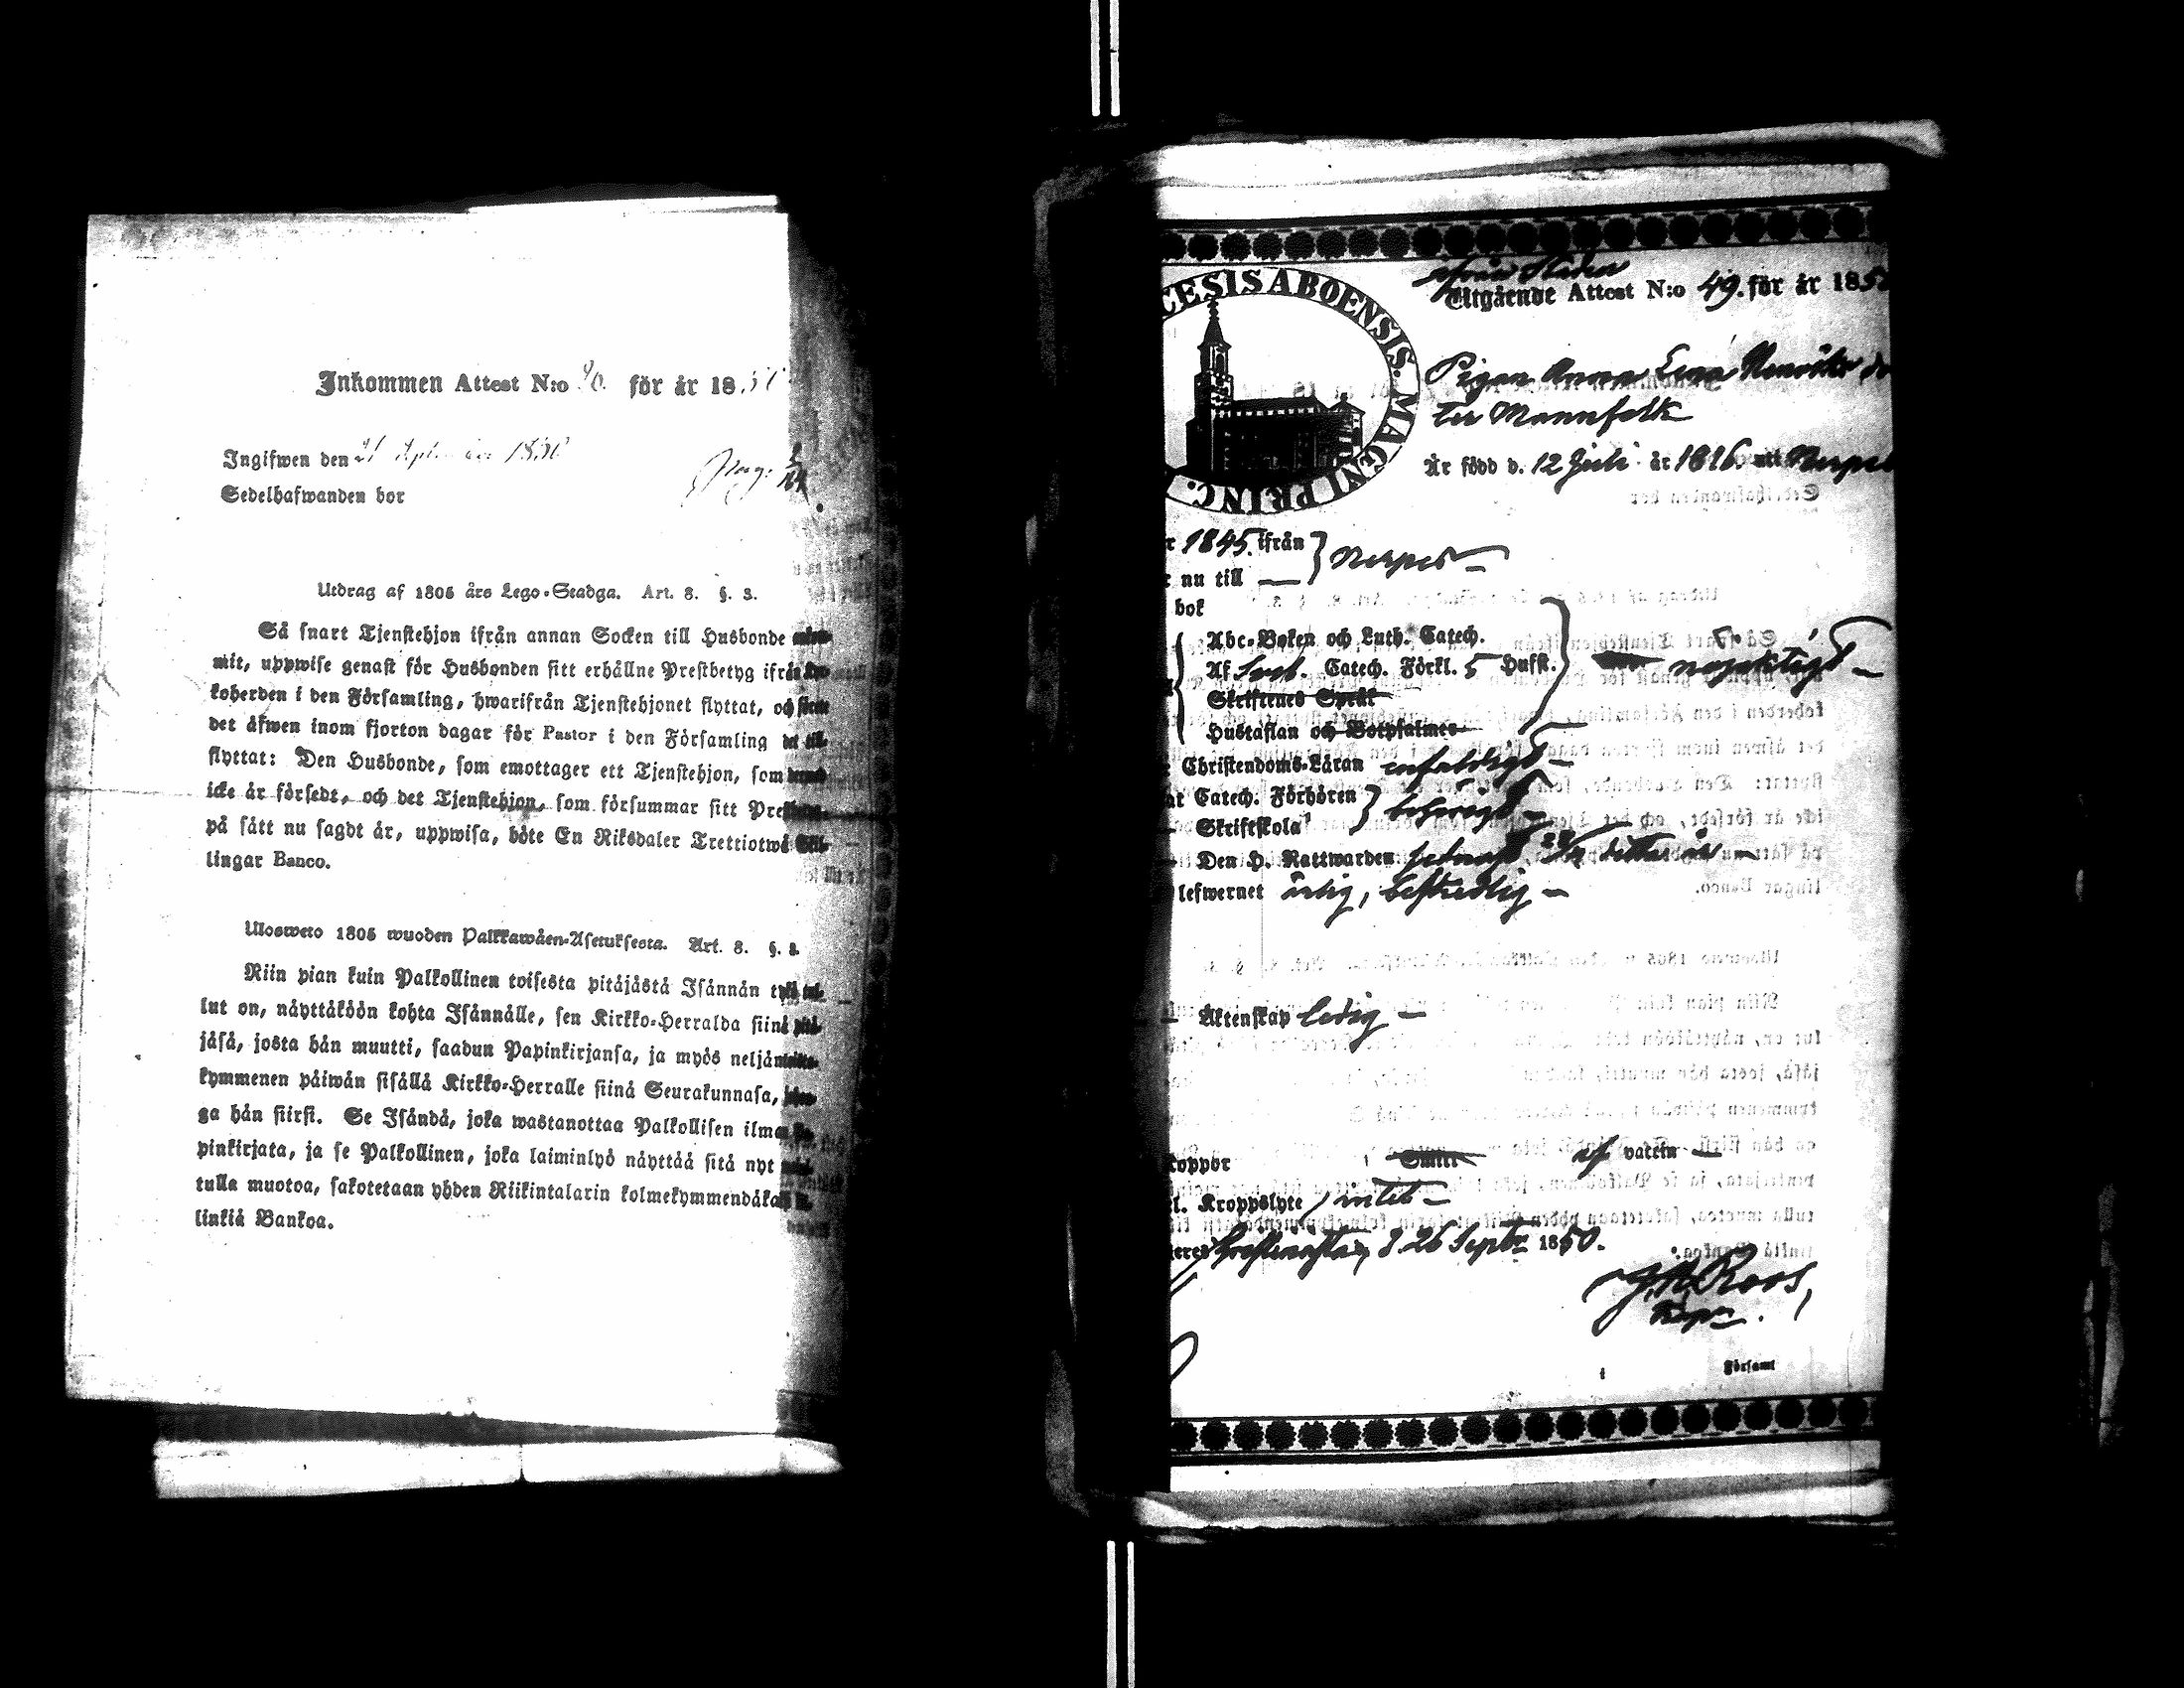 Inkommen Attest N:o för år 18
Ingifwen den 21 September 1850
Sedelhafwanden bor
Utdrag af 1805 års Lego-Stadga. Art. 8. §. 3.
Så snart Tjenstehjon ifrån annan Socken till Husbonde
mit, uppwise genast för Husbonden sitt erhållne Prestbetyg ifrån
koherden i den Församling, hwarifrån Tjenstehjonet flyttat, och
det äfwen inom fjorton dagar för Pastor i den Församling det till-
flyttat: Den Husbonde, som emottager ett Tjenstehjon, som
icke är försedt, och det Tjenstehjon, som försummar sitt
på sätt nu sagdt är, uppwisa, böte En Riksdaler Trettiotwå Skil-
lingar Banco.
Ulosweto 1805 wuoden Palkkawäen-Asetuksesta. Art. 8. §. 3.
Niin pian kuin Palkollinen toisesta pitäjästä Isännän
lut on, näyttäköön kohta Isännälle, sen Kirkko-Herralda siinä pitä-
jäsä, josta hän muutti, saadun Papinkirjansa, ja myös
kymmenen päiwän sisällä Kirkko-Herralle siinä Seurakunnasa,
ga hän siirsi. Se Isändä, joka wastanottaa Palkollisen ilman
pinkirjata, ja se Palkollinen, joka laiminlyö näyttää sitä nyt
tulla muotoa, sakotetaan yhden Riikintalarin
linkiä Bankoa.
CESIS ABOENSIS. MAGNI PRINC.
Utgående Attest N:o 49. för år 1850
Pigan Anna Lena
ter Mannfolk
Är född d. 12 Juli år 1816. uti Nerpes
1845. ifrån } Nerpes
nu till
bok
Abc-Boken och Luth. Catech.
Af Catech. Förkl. 5 Hufst.
Skriftenes Språk
Hustaflan och Botpsalmer
nöjaktigt
Christendoms-Läran enfaldigt
Catech. Förhören } behörigt
Skriftskola
Den H. Nattwarden detta år
lefwernet ärlig, beskedlig
Äktenskap ledig
af vaccin
Kroppslyte intet
d. 26 Septbr 1850.
Roos,
Församl